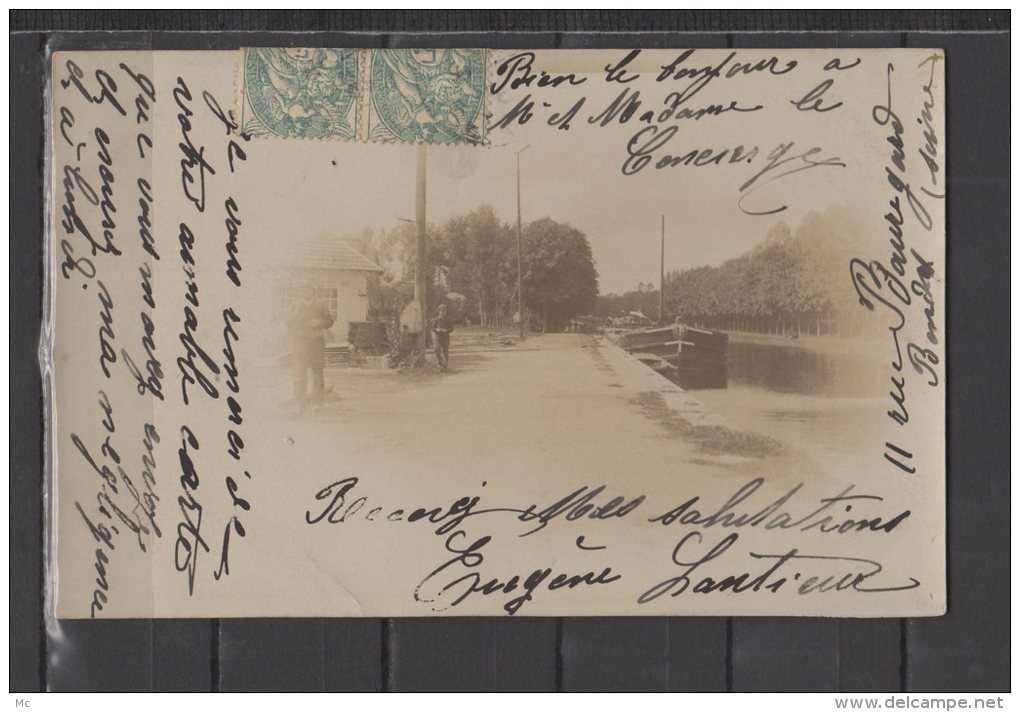 Bien le bonjour a
Mr et Madame le
Concierge
Je vous remercie de
votre aimable carte
que vous m'avez envoyé
et excusé ma négligence
11 rue Beauregard
Bondy (Seine)
Recevez Mes salutations
Eugène Lantieux
Mc
www.delcampe.net